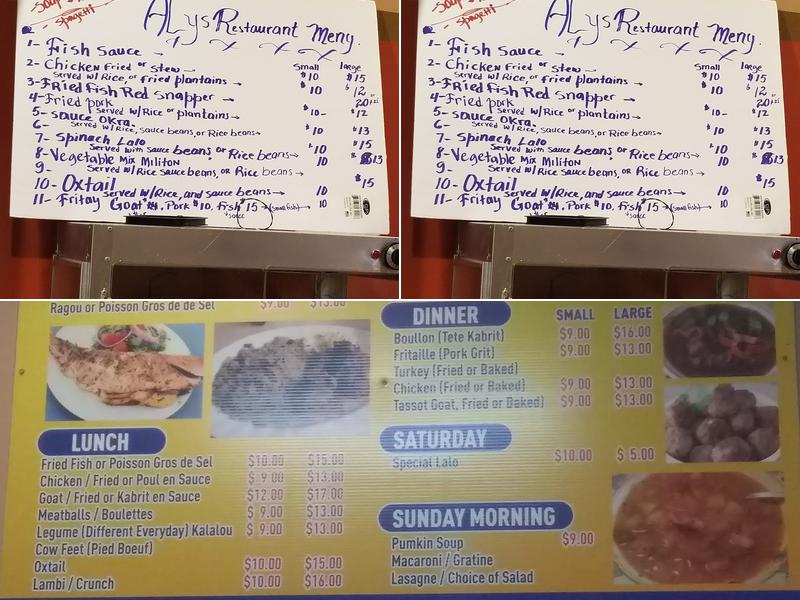 Soup
Spagetti
ALYS Restaurant Meny.
Small large
1- Fish Sauce $10 $15
2- Chicken Fried or Stew $10 $12
Served W/Rice, or Fried plantains
3- Fried fish Red Snapper 10 20
4- Fried pork $10- $12
Served W/Rice or plantains
5- Sauce OKra. $10 $13
6- Served W/Rice, Sauce beans, or Rice beans
7- Spinach Lalo 10 $15
Served with Sauce beans, or Rice beans
8- Vegetable Mix Militon 10 $13
9- Served W/Rice Sauce beans, or Rice beans
10- Oxtail 10 $15
Served W/Rice, and Sauce beans
11- Fritay Goat . Pork $10. Fish $15 (small fish) 10
Sauce
Soup
Spagetti
ALYS Restaurant Meny.
Small large
1- Fish Sauce $10 $15
2- Chicken Fried or Stew $10 $12
Served W/Rice, or Fried plantains
3- Fried fish Red Snapper 10 20
4- Fried pork $10- $12
Served W/Rice or plantains
5- Sauce OKra. $10 $13
6- Served W/Rice, Sauce beans, or Rice beans
7- Spinach Lalo 10 $15
Served with Sauce beans, or Rice beans
8- Vegetable Mix Militon 10 $13
9- Served W/Rice Sauce beans, or Rice beans
10- Oxtail 10 $15
Served W/Rice, and Sauce beans
11- Fritay Goat . Pork $10. Fish $15 (small fish) 10
Sauce
Ragou or Poisson Gros de de Sel $9.00 $13.00
LUNCH
Fried Fish or Poisson Gros de Sel $10.00 $15.00
Chicken / Fried or Poul en Sauce $ 9.00 $13.00
Goat / Fried or Kabrit en Sauce $12.00 $17.00
Meatballs / Boulettes $ 9.00 $13.00
Legume (Different Everyday) Kalalou $ 9.00 $13.00
Cow Feet (Pied Boeuf)
Oxtail $10.00 $15.00
Lambi / Crunch $10.00 $16.00
DINNER SMALL LARGE
Boullon (Tete Kabrit) $9.00 $16.00
Fritaille (Pork Grit) $9.00 $13.00
Turkey (Fried or Baked)
Chicken (Fried or Baked) $9.00 $13.00
Tassot Goat, Fried or Baked) $9.00 $13.00
SATURDAY
Special Lalo $10.00 $ 5.00
SUNDAY MORNING
Pumkin Soup $9.00
Macaroni / Gratine
Lasagne / Choice of Salad